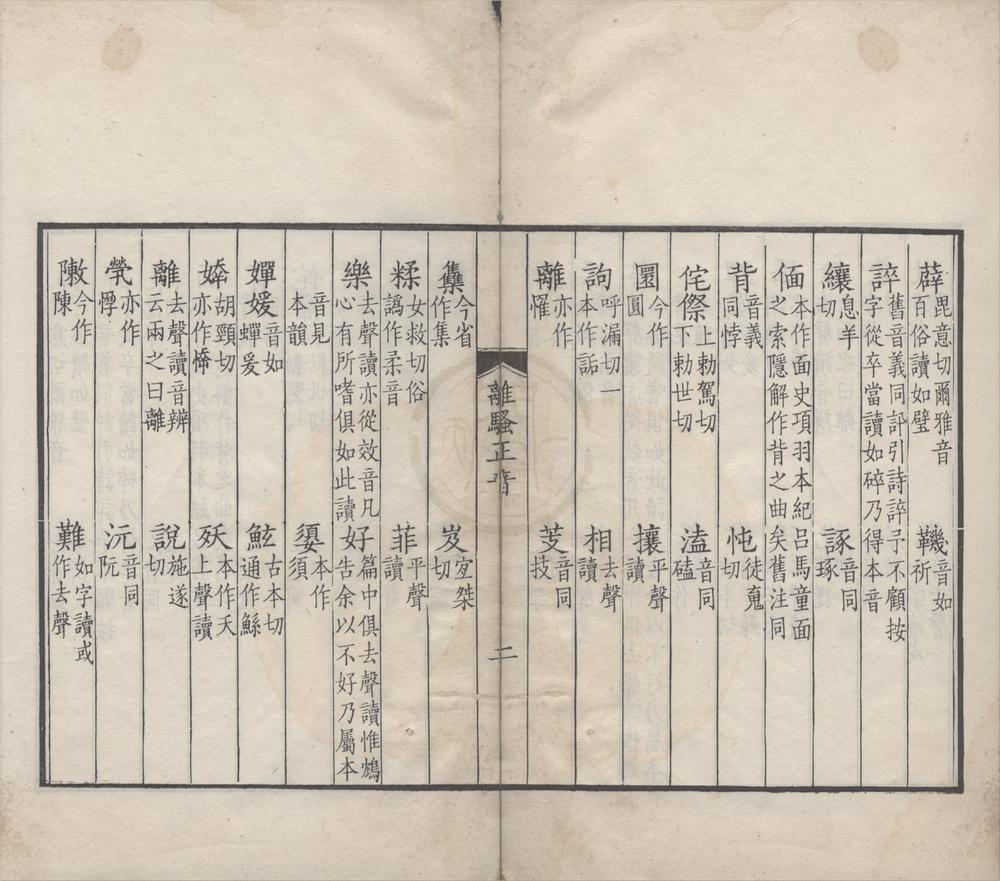 薜毘意切爾雅音百俗讀如璧 鞿音如祈
誶舊音義同訃引詩誶予不顧按字從卒當讀如碎乃得本音
纕息羊切 諑音同琢
偭本作面史項羽本紀呂馬童面之索隱解作背之曲矣舊注同
背音義同悖 忳徒䰟切
侘傺上勅駕切下勅世切 溘音同磕
圜今作圓 攘平聲讀
詢呼漏切一本作詬 相去聲讀
離亦作罹 芰音同技
離騷正音 二
雧今省作集 岌宐桀切
糅女救切俗譌作柔音 菲平聲讀
樂去聲讀亦從效音凡心有所嗜俱如此讀 好篇中俱去聲讀惟鴆告余以不好乃屬本
音見本韻 嬃本作須
嬋媛音如蟬爰 鮌古本切通作鯀
婞胡頸切亦作㛛 殀本作夭上聲讀
離去聲讀音辨云兩之曰離 說施遂切
煢亦作惸 沅音同阮
敶今作陳 難如字讀或作去聲